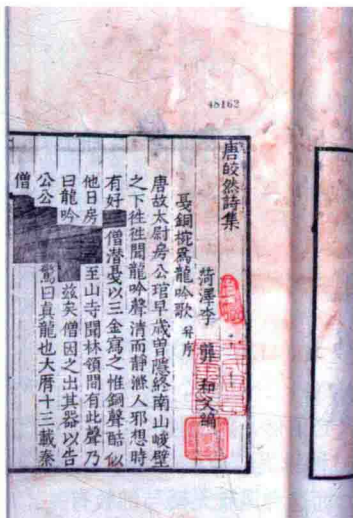 48162
唐皎然詩集
菏澤李龏和父編
戛銅椀爲龍吟歌 并序
唐故太尉房公琯早歲曽隱終南山峻壁
之下徃徃聞龍吟聲清而靜滌人邪想時
有好僧潜戛以三金寫之惟銅聲酷似
他日房至山寺聞林領間有此聲乃
曰龍吟兹矣僧因之出其器以告
公公驚曰真龍也大厤十三載秦
僧